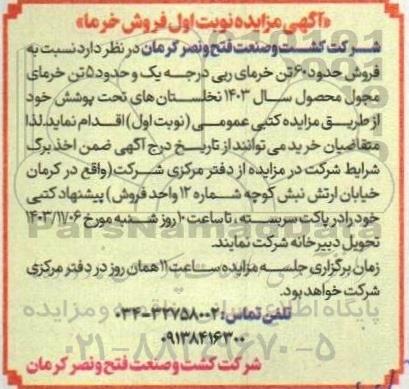 «آگهی مزایده نوبت اول فروش خرما»
شرکت کشت و صنعت فتح و نصر کرمان در نظر دارد نسبت به
فروش حدود ۶۰ تن خرمای ربی درجه یک و حدود ۵ تن خرمای
مجول محصول سال ۱۴۰۳ نخلستان های تحت پوشش خود
از طریق مزایده کتبی عمومی (نوبت اول) اقدام نماید. لذا
متقاضیان خرید می توانند از تاریخ درج آگهی ضمن اخذ برگ
شرایط شرکت در مزایده از دفتر مرکزی شرکت (واقع در کرمان
خیابان ارتش نبش کوچه شماره ۱۲ واحد فروش) پیشنهاد کتبی
خود را در پاکت سربسته، تا ساعت ۱۰ روز شنبه مورخ ۱۴۰۳/۱۱/۰۶
تحویل دبیرخانه شرکت نمایند.
زمان برگزاری جلسه مزایده ساعت ۱۱ همان روز در دفتر مرکزی
شرکت خواهد بود.
تلفن تماس: ۳۲۷۵۸۰۰۲-۰۳۴
۰۹۱۳۸۴۱۶۳۰۰
شرکت کشت و صنعت فتح و نصر کرمان
ParsNamadData
پایگاه اطلاع رسانی مناقصه و مزایده
۰۲۱-۸۸۳۴۹۶۷۰-۵